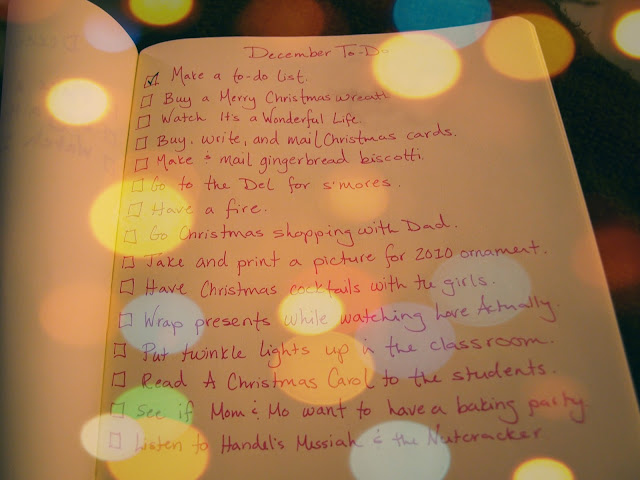 December To-Do
Make a to-do list.
Buy a Merry Christmas wreath
Watch It's a Wonderful Life.
Buy, write, and mail Christmas cards.
Make & mail gingerbread biscotti.
Go to the Del for s'mores.
Have a fire.
Go Christmas shopping with Dad.
Take and print a picture for 2010 ornament.
Have Christmas cocktails with the girls.
Wrap presents while watching Love Actually.
Put twinkle lights up in the classroom.
Read A Christmas Carol to the students.
See if Mom & Mo want to have a baking party.
Listen to Handel's Messiah & the Nutcracker